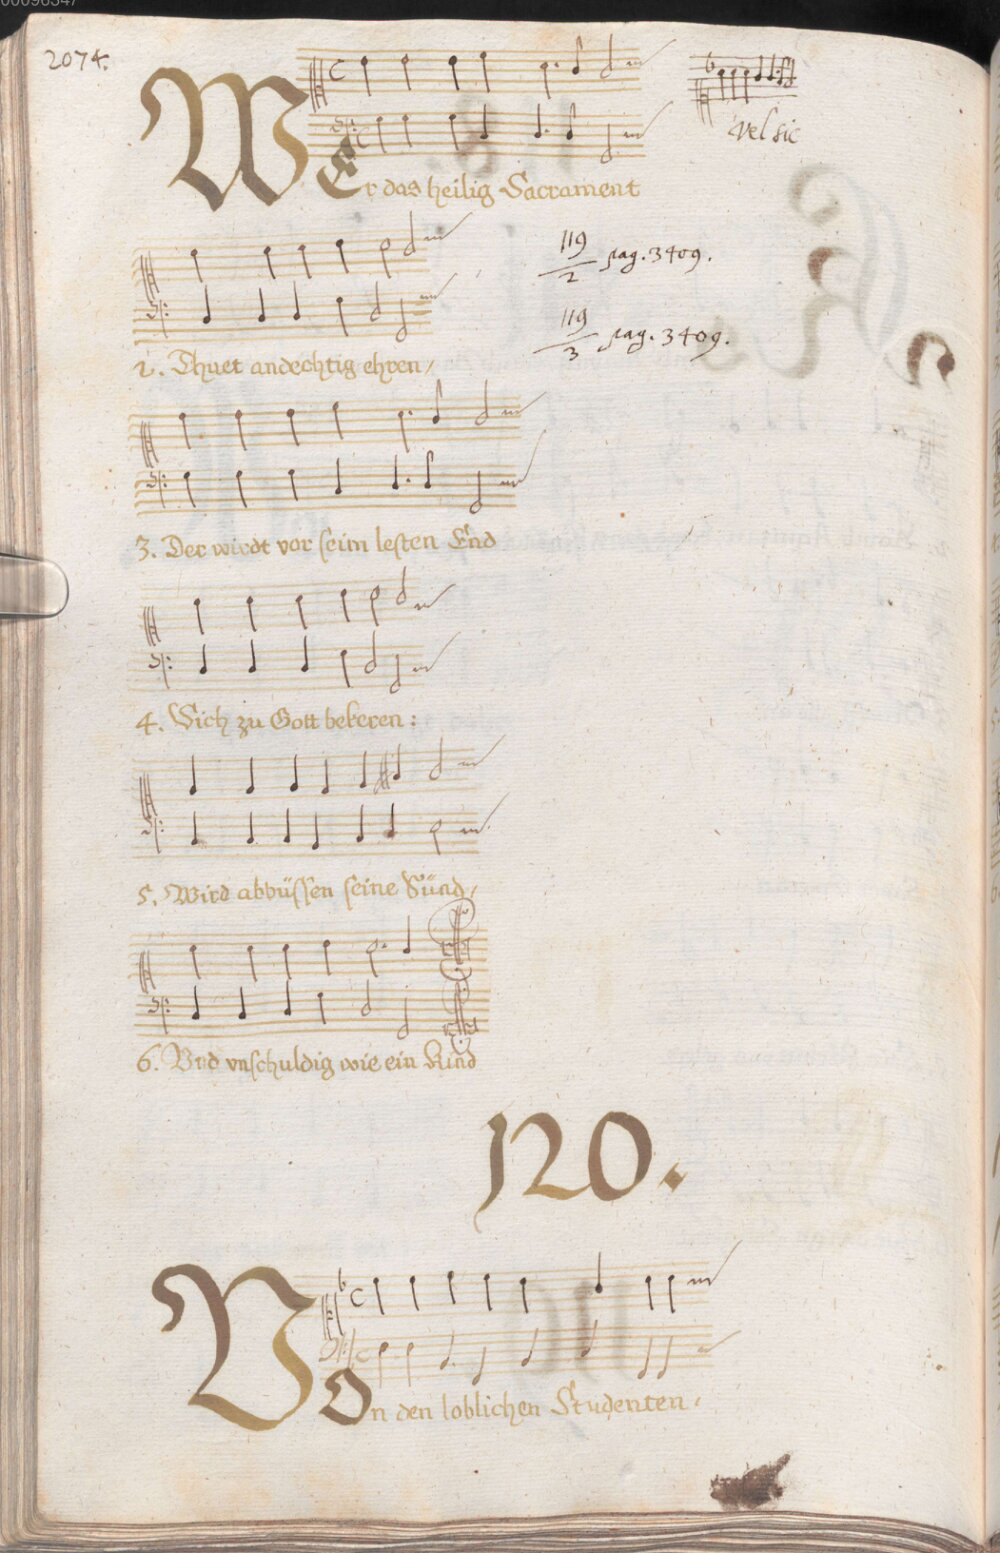 00096347
2074.
vel sic
WEr das heilig Sacrament
119/2 pag. 3409.
119/3 pag. 3409.
2. Thuet andechtig ehren/
3. Der wirdt vor seim lesten End
4. Sich zu Gott bekeren:
5. Wird abbüssen seine Sünd/
6. Vnd vnschuldig wie ein Kind
120.
VOn den loblichen Studenten/